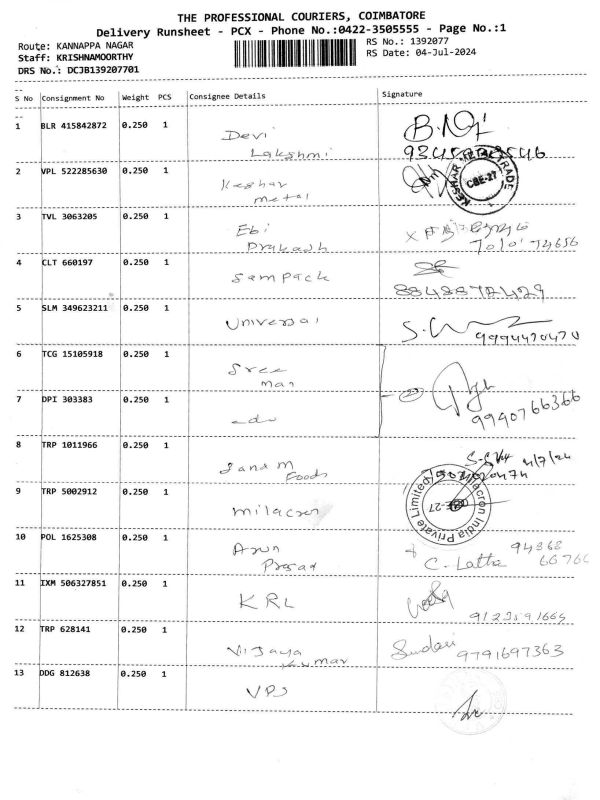 THE PROFESSIONAL COURIERS, COIMBATORE
Delivery Runsheet - PCX - Phone No.:0422-3505555 - Page No.:1
Route: KANNAPPA NAGAR
RS No.: 1392077
Staff: KRISHNAMOORTHY
RS Date: 04-Jul-2024
DRS No.: DCJB139207701
S No Consignment No Weight PCS Consignee Details Signature
1 BLR 415842872 0.250 1 Devi
Lakshmi
2 VPL 522285630 0.250 1 Keshar
metal
KESHAR METAL TRADE
CBE-27
3 TVL 3063205 0.250 1 Ebi
Prakash
4 CLT 660197 0.250 1 Sampack
5 SLM 349623211 0.250 1 Universal
9994470470
6 TCG 15105918 0.250 1 Sree
Mar
7 DPI 303383 0.250 1 edu
9940766366
8 TRP 1011966 0.250 1 J and M
Foods
4/7/24
9 TRP 5002912 0.250 1 Milacron
Milacron India Private Limited
10 POL 1625308 0.250 1 Arun
Prasad
C. Latha
94868
11 IXM 506327851 0.250 1 KRL
12 TRP 628141 0.250 1 Vijaya
Kumar
Sundari 9791697363
13 DDG 812638 0.250 1 VPS